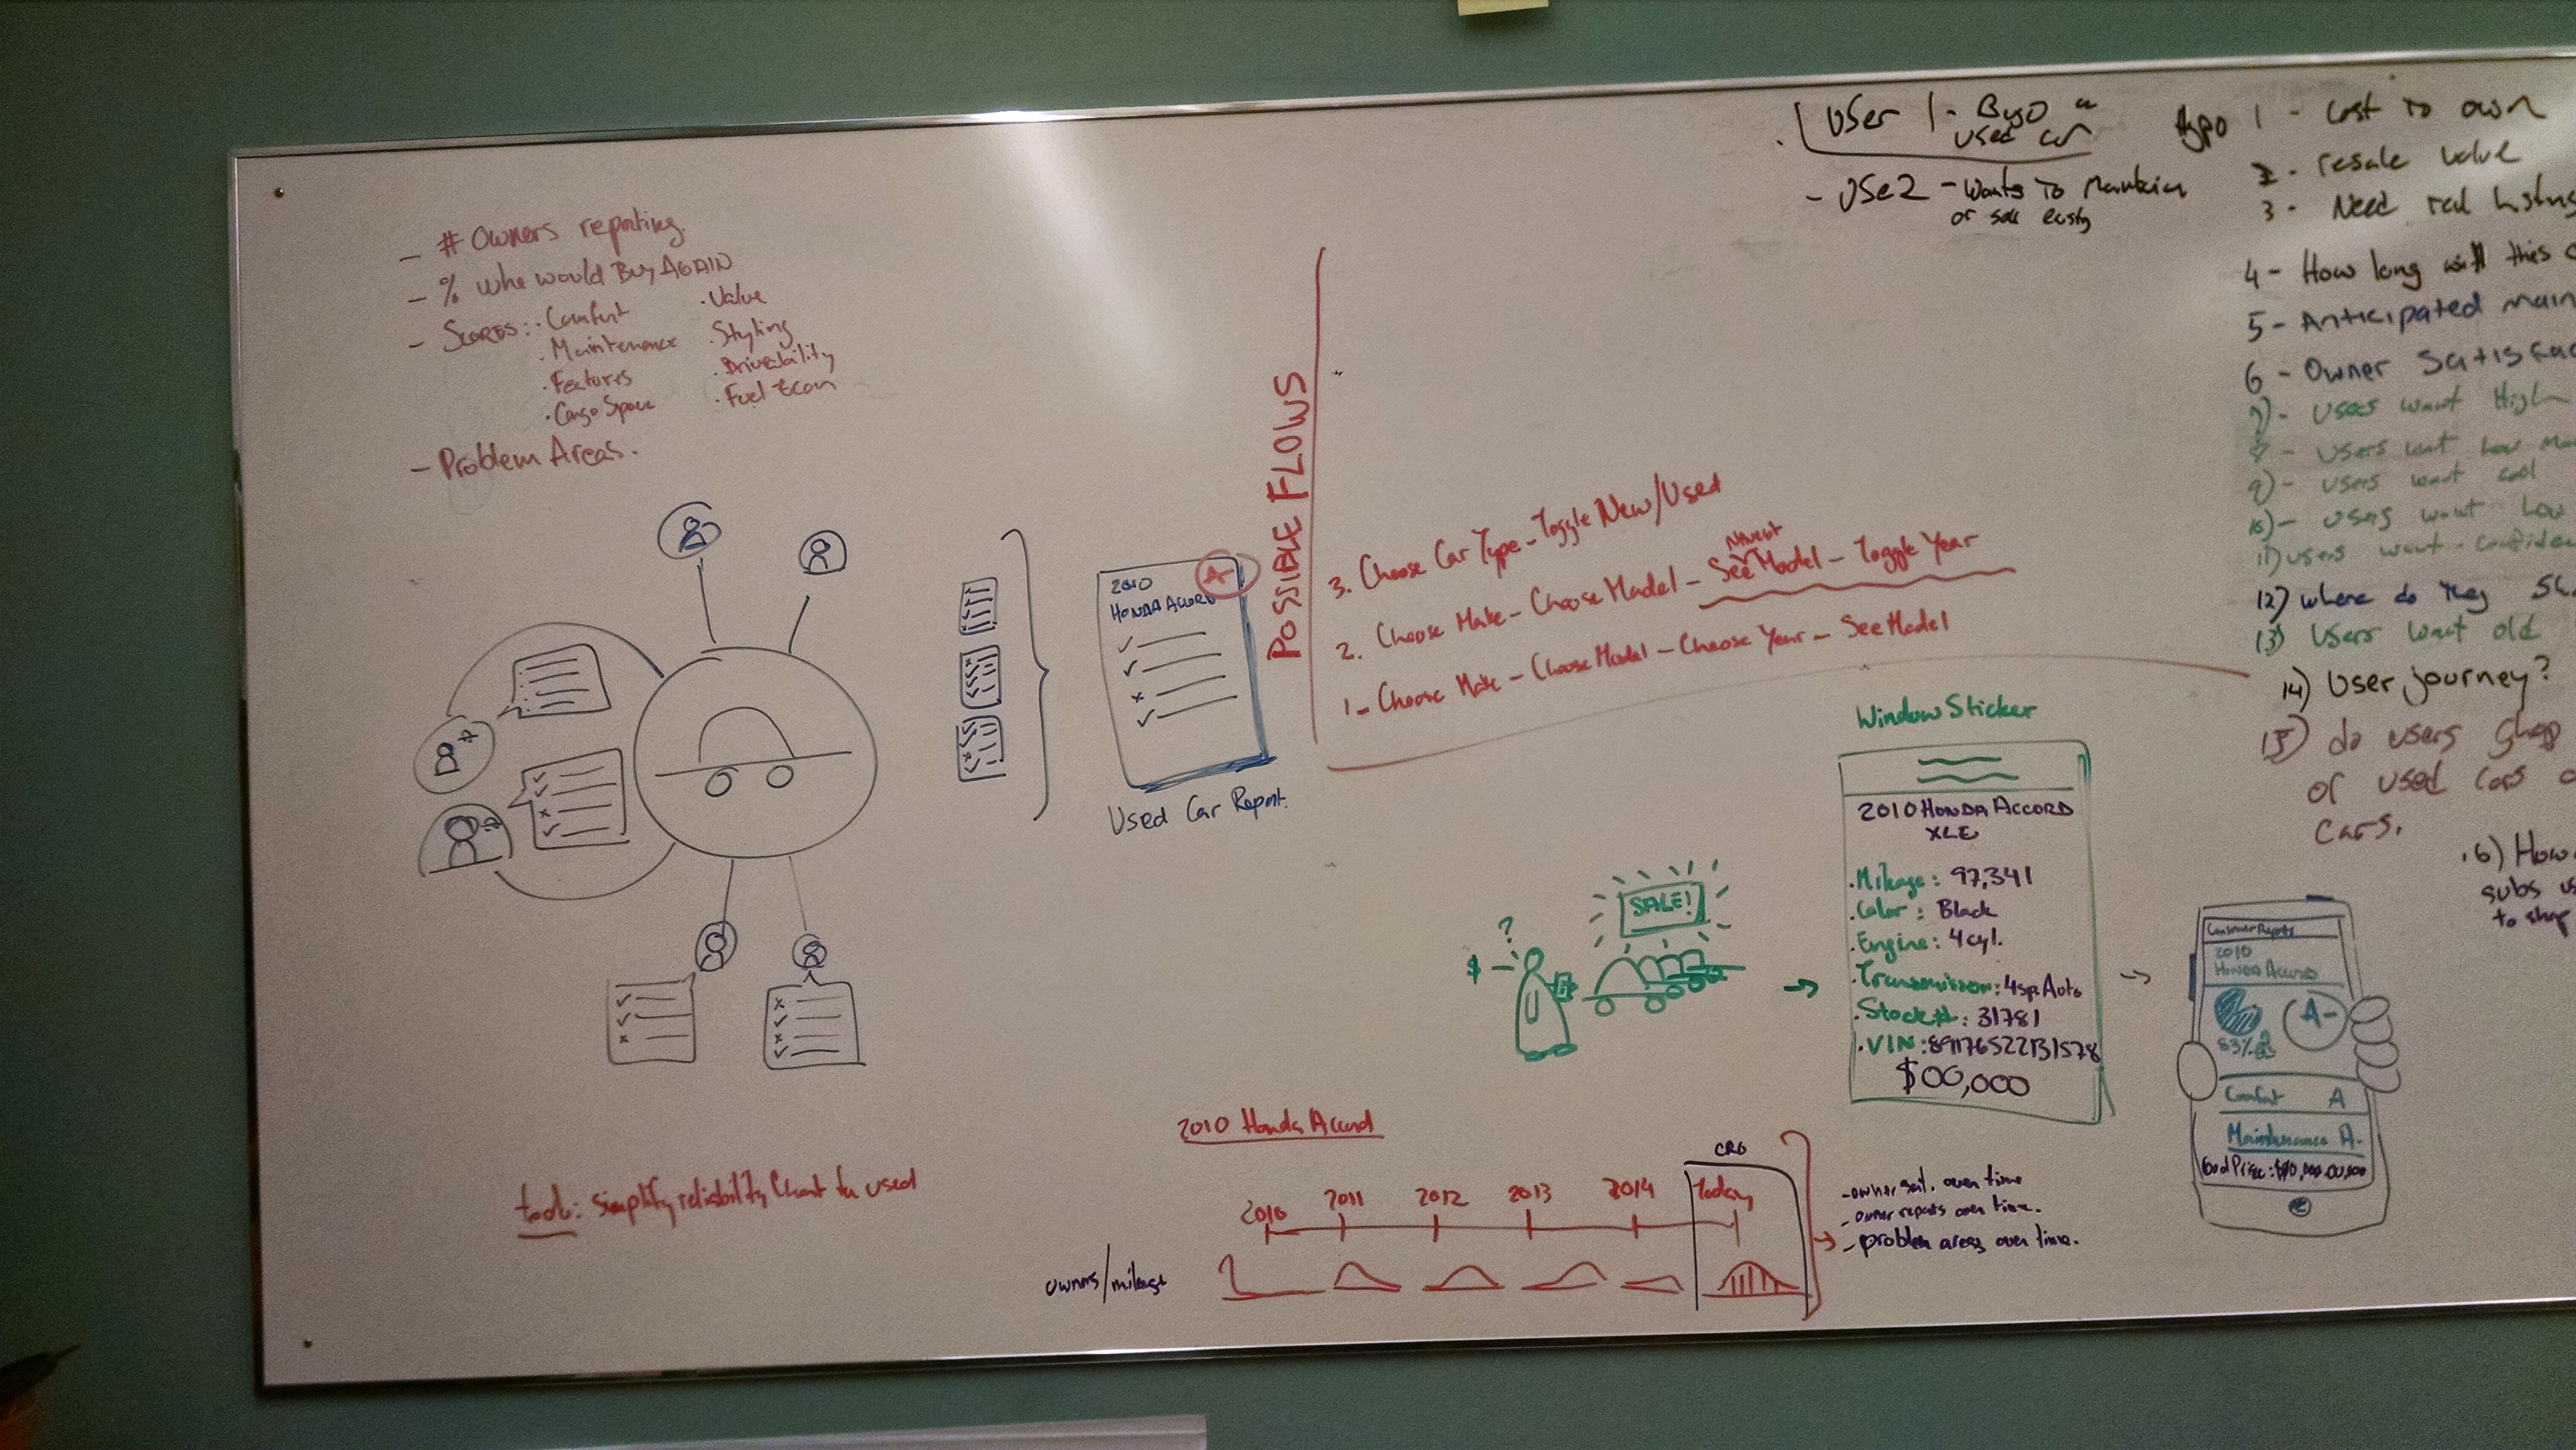 - # Owners reporting.
- % who would Buy AGAIN
- SCORES: . Comfort . Value
. Maintenance . Styling
. Features . Driveability
. Cargo Space . Fuel Econ
- Problem Areas.
2010
HONDA ACCORD
Used Car Report.
POSSIBLE FLOWS
3. Choose Car Type - Toggle New/Used
2. Choose Make - Choose Model - See Newest Model - Toggle Year
1 - Choose Make - Choose Model - Choose Year - See Model
User 1 -
used car
- USe2 - Wants to Maintain
or sell easily
Hypo 1 - Cost to own
2 - resale value
3 - Need real
4 - How long will this
5 - Anticipated
6 - Owner
7) - Users want High
8 - Users want Low
9) - Users want cool
10) - Users want Low
11) users want
12) where do they
13) Users want old
14) User journey?
15) do users shop
of used cars
cars.
16) How
subs
to shop
Window Sticker
2010 HONDA ACCORD
XLE
. Mileage: 97,341
. Color: Black
. Engine: 4 cyl.
. Transmission: 4sp. Auto
. Stock#: 31781
. VIN:
$00,000
SALE!
?
$
Consumer Reports
2010
HONDA ACCORD
A-
83%
Comfort A
Maintenance A-
Good Price:
tool: simplify reliability Chart for used
2010 Honda Accord
2010 2011 2012 2013 2014 Today
CRO
owners/mileage
- owner sat. over time
- owner reports over time.
- problem areas over time.